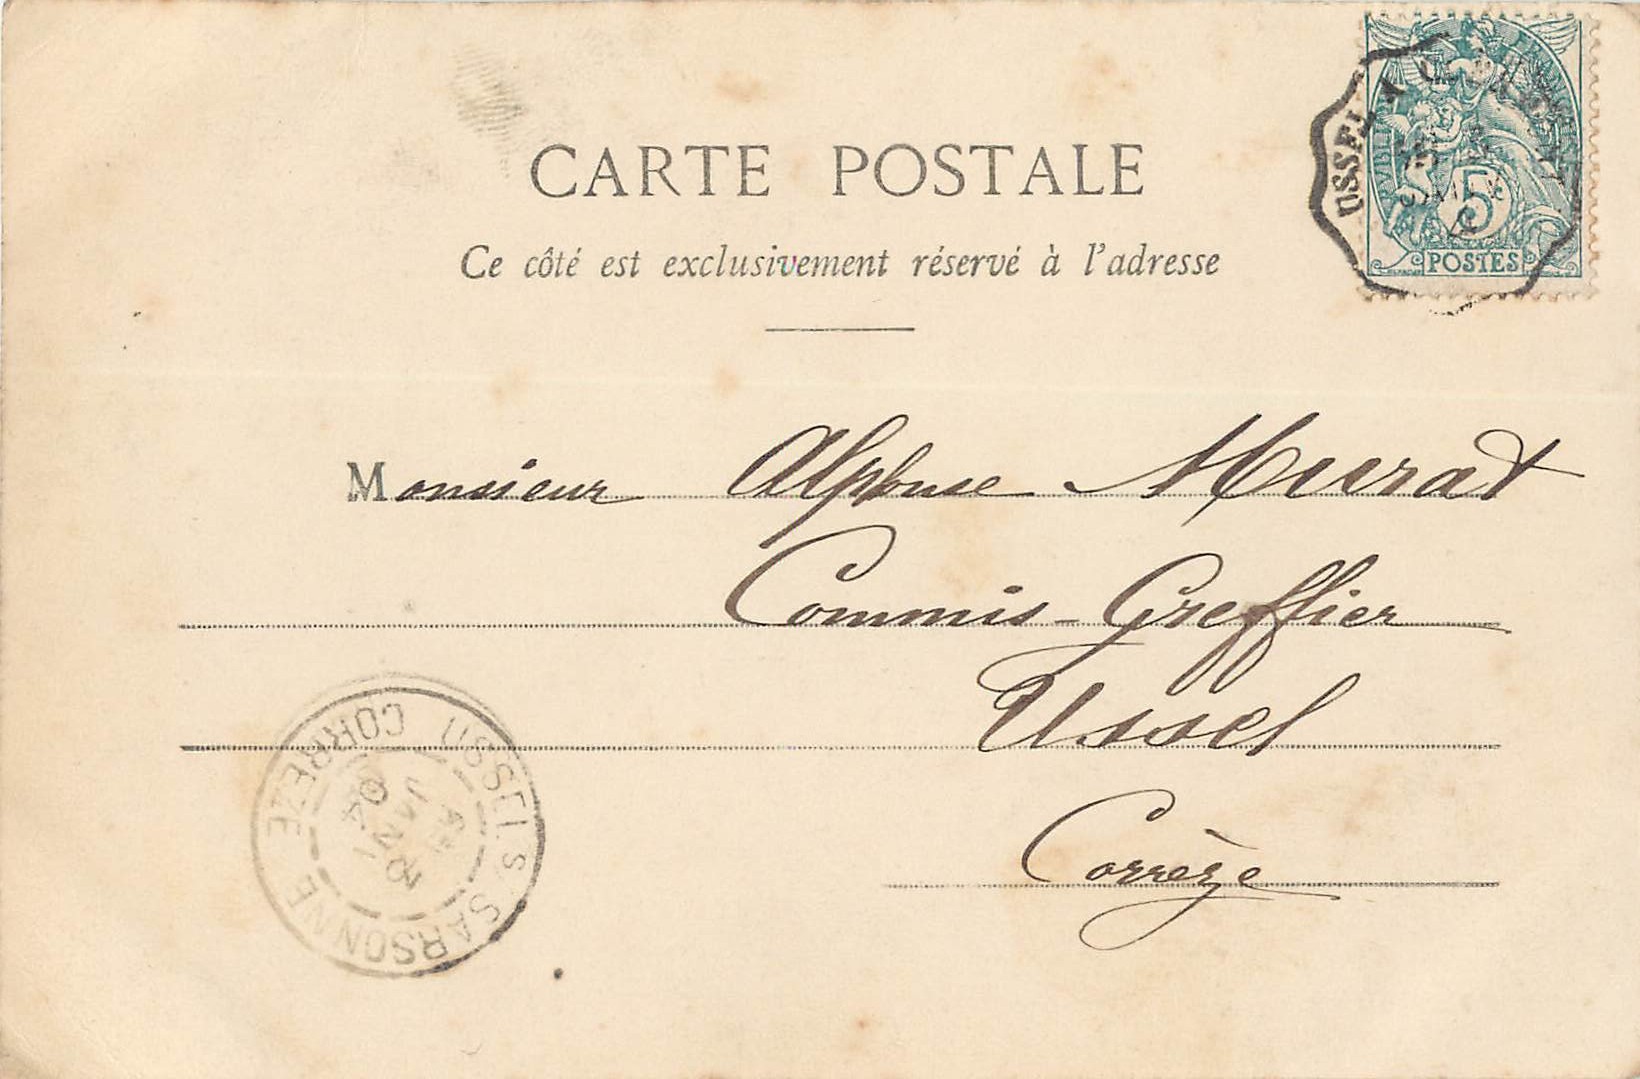 CARTE POSTALE
Ce côté est exclusivement réservé à l'adresse
USSEL A
5
POSTES
Monsieur Alphonse Murat
Commis-Greffier
Ussel
Corrèze
USSEL S. SARSONNE
CORREZE
JANV
04